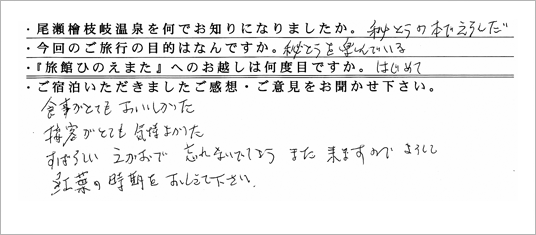 ・尾瀬檜枝岐温泉を何でお知りになりましたか。秘とうの本でえらしだ
・今回のご旅行の目的はなんですか。秘とうを楽しんでいる
・『旅館ひのえまた』へのお越しは何度目ですか。はじめて
・ご宿泊いただきましたご感想・ご意見をお聞かせ下さい。
食事がとても おいしかった
接客がとても 気持よかった
すばらしい えがおで 忘れないでしょう また 来ますので よろしく
紅葉の時期を おしえて下さい.